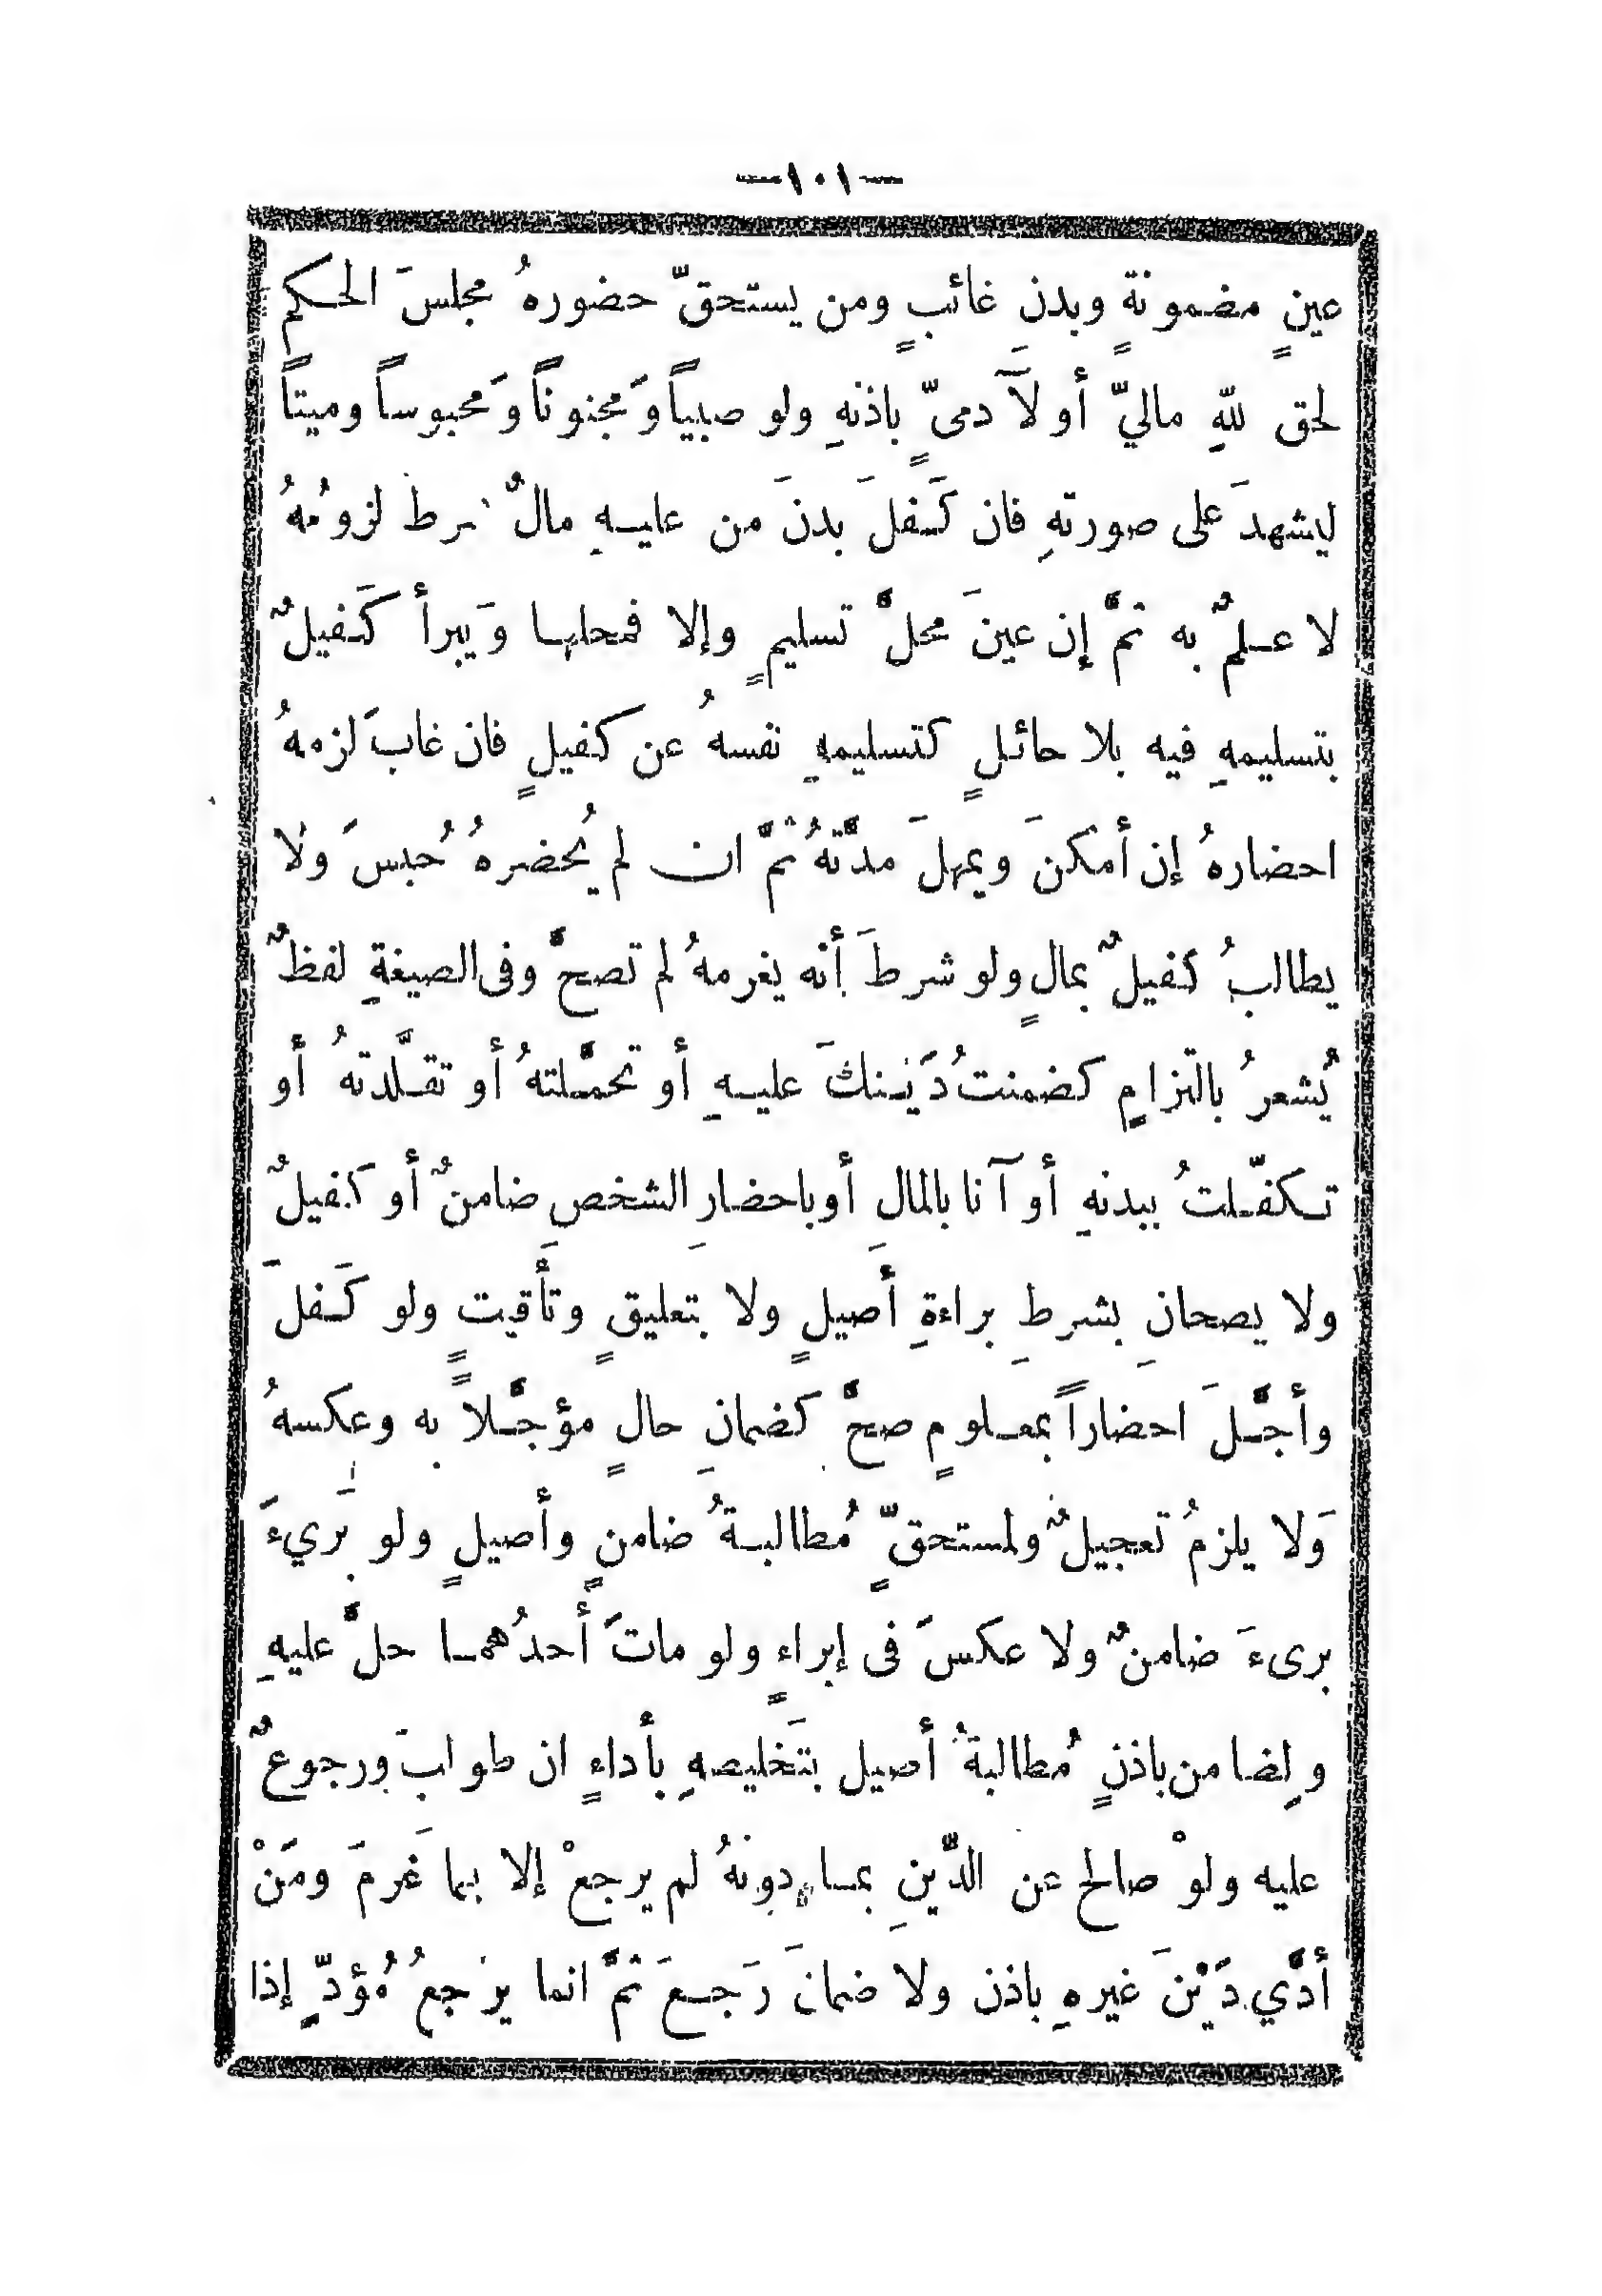 —١٠١—
عينٍ مضمونةٍ وبدنِ غائبٍ ومن يستحقّ حضورهُ مجلسَ الحكم
لحق للهِ ماليّ أو لآدمىّ باذنهِ ولو صبياً وَمجنوناً وَمحبوساً وميتاً
ليشهدَ على صورتهِ فان كَفلَ بدنَ من عليهِ مالٌ شرط لزومُهُ
لا علمٌ به ثمَّ إن عينَ محلَّ تسليمٍ وإلا فمحلها وَيبرأ كَفيلٌ
بتسليمهِ فيه بلا حائلٍ كتسليمهِ نفسهُ عن كفيلٍ فان غابَ لزمهُ
احضارهُ إن أمكنَ ويمهلَ مدَّتهُ ثُمَّ ان لم يُحضرهُ حُبسَ ولا
يطالبُ كفيلٌ بمالٍ ولو شرطَ أنه يغرمهُ لم تصحَّ وفى الصيغةِ لفظٌ
يُشعرُ بالتزامٍ كضمنتُ دَيْنكَ عليهِ أو تحمَّلتهُ أو تقلَّدتهُ أو
تكفّلتُ ببدنهِ أو آنا بالمال أو باحضارِ الشخصِ ضامنٌ أو كفيلٌ
ولا يصحانِ بشرطِ براءةِ أَصيلٍ ولا بتعليقٍ وتأَقيتٍ ولو كَفلَ
وأجَّلَ احضاراً بمعلومٍ صحَّ كضمانِ حالٍ مؤجَّلاً به وعكسهُ
وَلا يلزمُ تعجيلٌ ولمستحقٍّ مُطالبةُ ضامنٍ وأصيلٍ ولو بَريءَ
برىءَ ضامنٌ ولا عكسَ فى إبراءٍ ولو ماتَ أحدُهما حلَّ عليهِ
ولِضامن باذنٍ مُطالبةُ أصيل بتَخليصهِ بأداءٍ ان طولبَ ورجوعٌ
عليه ولوْ صالح عن الدّينِ بما دونهُ لم يرجعْ إلا بما غَرمَ ومَنْ
أدَّي دَيْنَ غيرهِ باذن ولا ضمانَ رَجعَ ثمَّ انما يرْجعُ مُؤدٍّ إذا